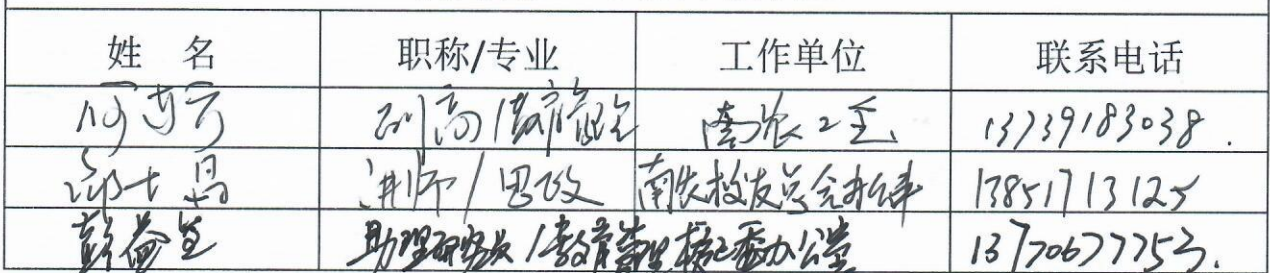 姓 名 职称/专业 工作单位 联系电话
副高/教育 南农工会 13739183038.
邵士昌 讲师/思政 南农校友总会办公室 13851713125
彭益全 助理研究员/教育管理 校工委办公室 13770677753.